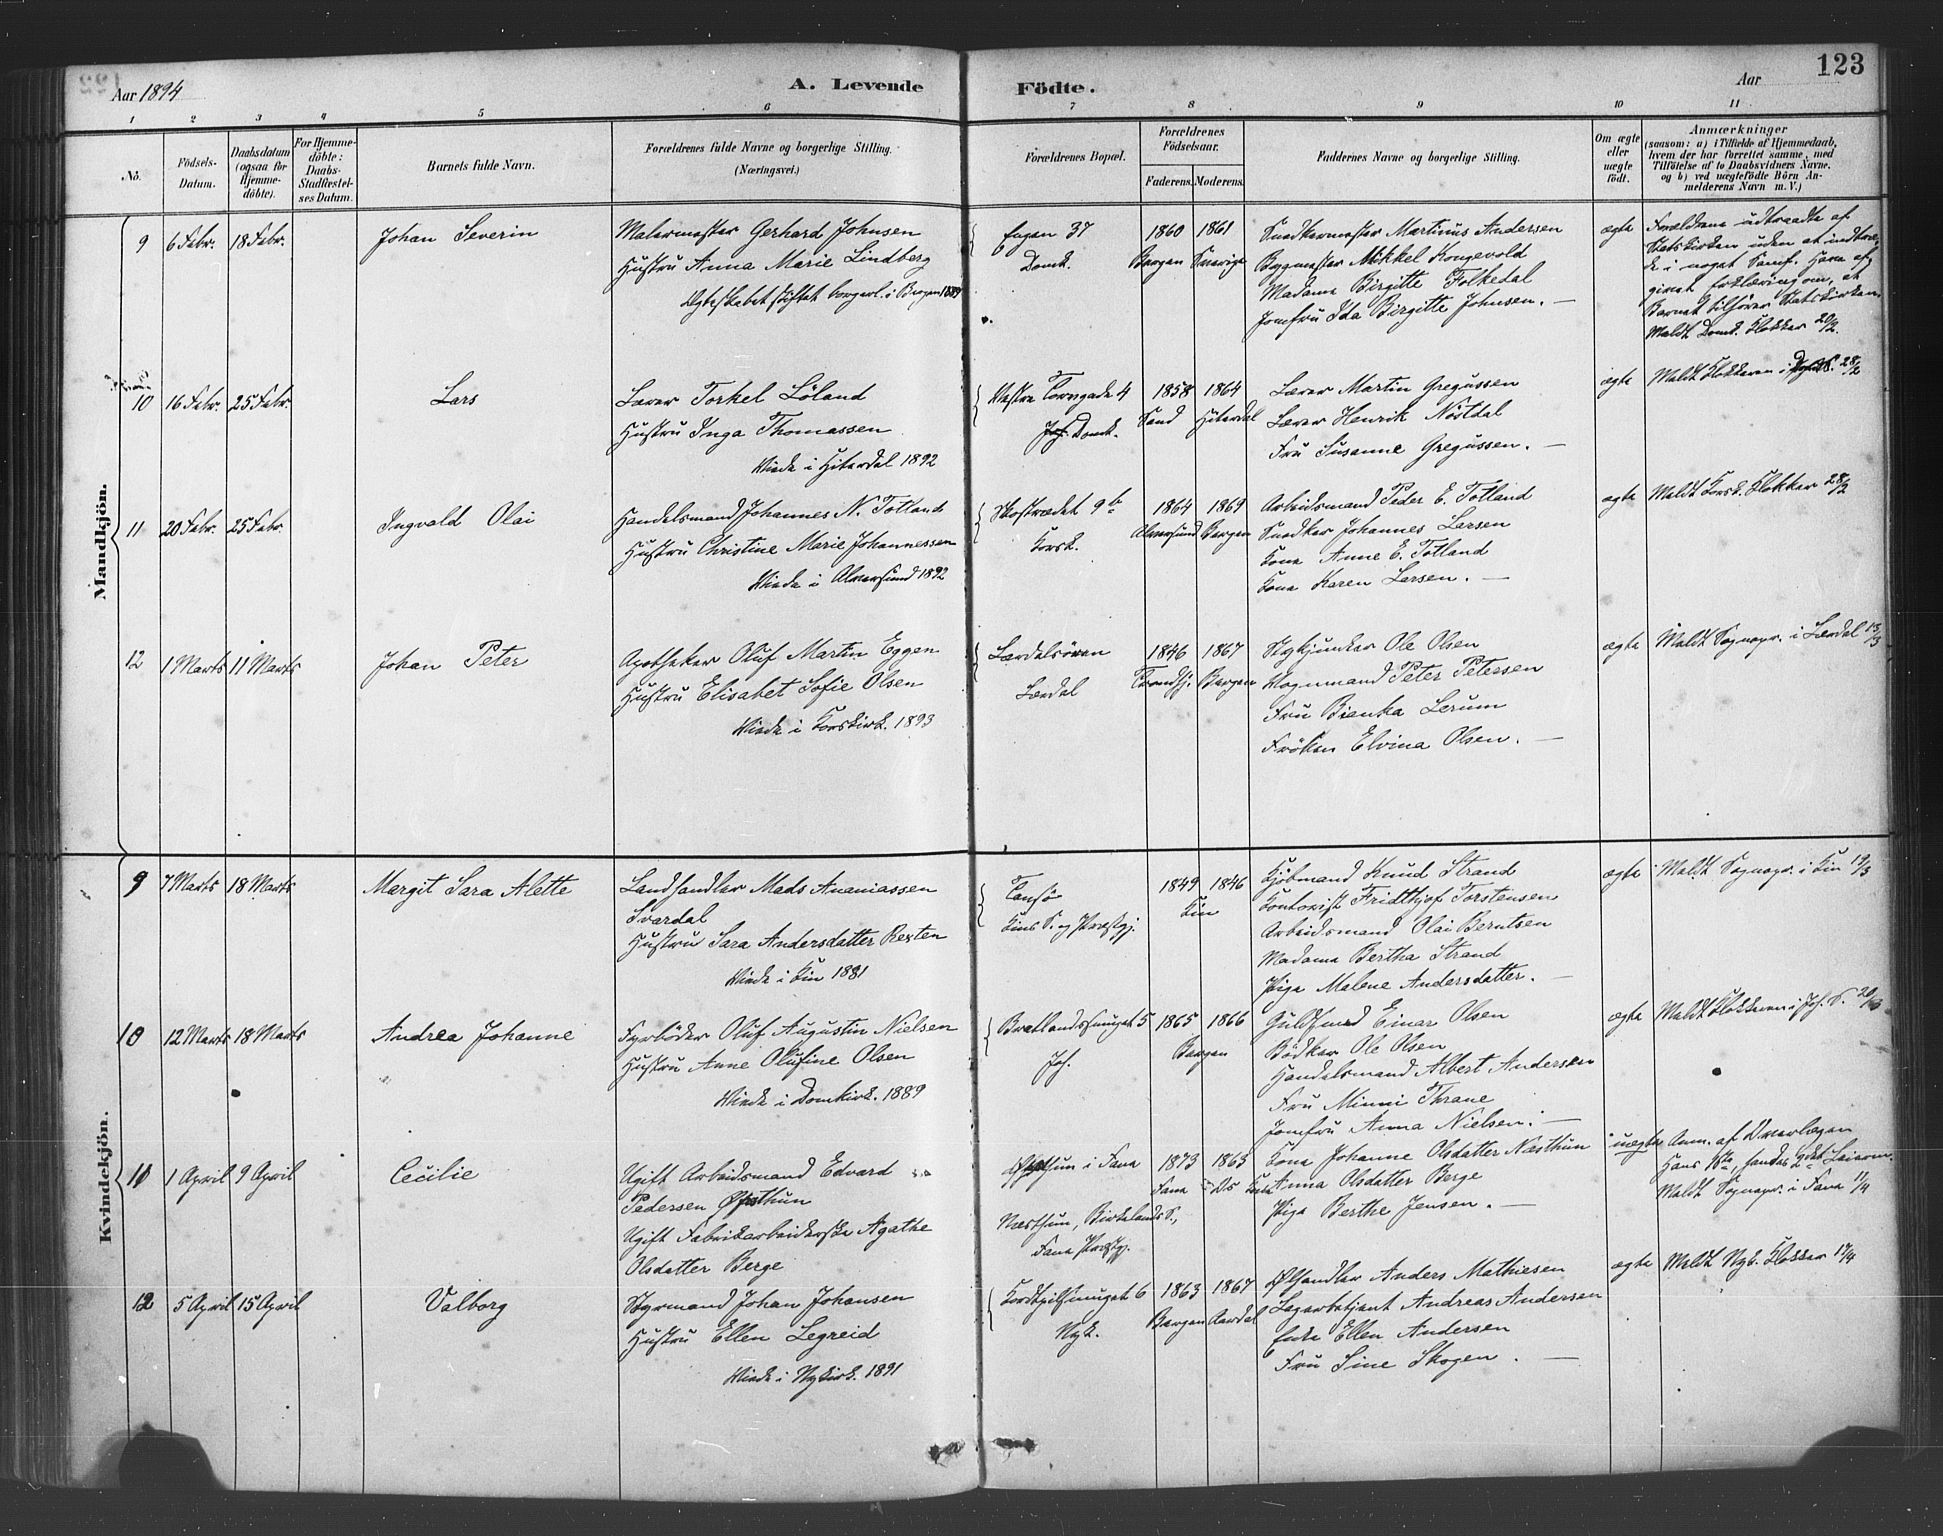 Aar 1894
A. Levende
Födte.
Aar
123
1
2
3
4
5
6
7
8
9
10
11
No.
Födsels-
Datum.
Daabsdatum
(ogsaa for
Hjemme-
döbte).
For Hjemme-
döbte:
Daabs-
Stadfæstel-
ses Datum.
Barnets fulde Navn.
Forældrenes fulde Navne og borgerlige Stilling.
(Næringsvei.)
Forældrenes Bopæl.
Forældrenes
Födselsaar.
Faderens.
Moderens.
Faddernes Navne og borgerlige Stilling.
Om ægte
eller
uægte
födt.
Anmærkninger
(saasom: a) i Tilfælde af Hjemmedaab,
hvem der har forrettet samme, med
Tilföielse af to Daabsvidners Navne.
og b) ved uægtefödte Börn An-
melderens Navn m. V.)
Mandkjön.
9
6 Febr.
18 Febr.
Johan Severin
Malermester Gerhard Johnsen
Hustru Anna Marie Lindberg
Ægteskabet stiftet borgerl. i Bergen 1889
Engen 37
Domk.
1860
Bergen
1861
Sverige
Snedkermester Martinus Andersen
Bygmester Mikkel Kongevold
Madame Birgitte Folkedal
Jomfru Ida Birgitte Johnsen. —
ægte
Forældrene udtraadte af
Statskirken uden at indtræ-
de i noget Samf. Have af
givet forklæring om, at
Barnet tilhører Statskirken.
Meldt Domk. Klokker 20/2.
10
16 Febr.
25 Febr.
Lars
Lærer Torkel Löland
Hustru Inga Thomassen
Viede i Hiterdal 1892
Vestre Torvgade 4
Domk.
1858
Sand
1864
Hiterdal
Lærer Martin Gregussen
Lærer Henrik Nöstdal
Fru Susanne Gregussen. —
ægte
Meldt Klokkeren i 28/2
11
20 Febr.
25 Febr.
Ingvald Olai
Handelsmand Johannes N. Totland
Hustru Christine Marie Johannessen
Viede i Alversund 1892
Skostrædet 9 b
Korsk.
1864
Alversund
1869
Bergen
Arbeidsmand Peder E. Totland
Snedker Johannes Larsen
Kone Anne E. Totland
Kone Karen Larsen. —
ægte
Meldt Korsk. Klokker 28/2
12
1 Marts
11 Marts
Johan Peter
Apotheker Oluf Martin Eggen
Hustru Elisabet Sofie Olsen
Viede i Korskirk. 1893
Lærdalsören
Lærdal
1846
Trondhj.
1867
Bergen
Ole Olsen
Vognmand Peter Petersen
Fru Bienka Lerum
Fröken Elvina Olsen. —
ægte
Meldt Sognepr. i Lærdal 13/3
Kvindekjön.
9
7 Marts
18 Marts
Margit Sara Alette
Landhandler Mads Ananiassen
Svardal
Hustru Sara Andersdatter Rexten
Viede i Kin 1881
Tansö
Kins S. og Præstgj.
1849
1846
Kin
Kjöbmand Knud Strand
Kontorist Fridthjof Torstensen
Arbeidsmand Olai Berntsen
Madame Bertha Strand
Pige Malene Andersdatter. —
ægte
Meldt Sognepr. i Kin 19/3
10
12 Marts
18 Marts
Andrea Johanne
Fyrböder Oluf Augustin Nielsen
Hustru Anne Olufine Olsen
Viede i Domkirk. 1889
Bratlandssmuget 5
Joh.
1865
1866
Bergen
Guldsmed Einar Olsen
Bödker Ole Olsen
Handelsmand Albert Andersen
Fru Minni Thrane
Jomfru Anna Nielsen. —
ægte
Meldt Klokkeren i Joh. S. 20/3
11
1 April
9 April
Cecilie
Ugift Arbeidsmand Edvard
Pedersen Øvsthun
Ugift Fabrikarbeiderske Agathe
Olsdatter Berge
Øvsthun i Fana
Næsthun, Birkelands S.,
Fana Præstgj.
1873
Fana
1863
Ds
Kone Johanne Olsdatter Næsthun
Kone Anna Olsdatter Berge
Pige Berthe Jensen. —
uægte
Anm. af Overlægen
Hans 1ste, hendes 2det Leierm.
Meldt Sognepr. i Fana 11/4
12
5 April
15 April
Valborg
Styrmand Johan Johansen
Hustru Ellen Legreid
Viede i Nykirk. 1891
6
Nyk.
1863
Bergen
1867
Aardal
Ølhandler Anders Mathiesen
Lagerbetjent Andreas Andersen
Enke Ellen Andersen
Fru Sine Skogen. —
ægte
Meldt Nyk. Klokker 17/4